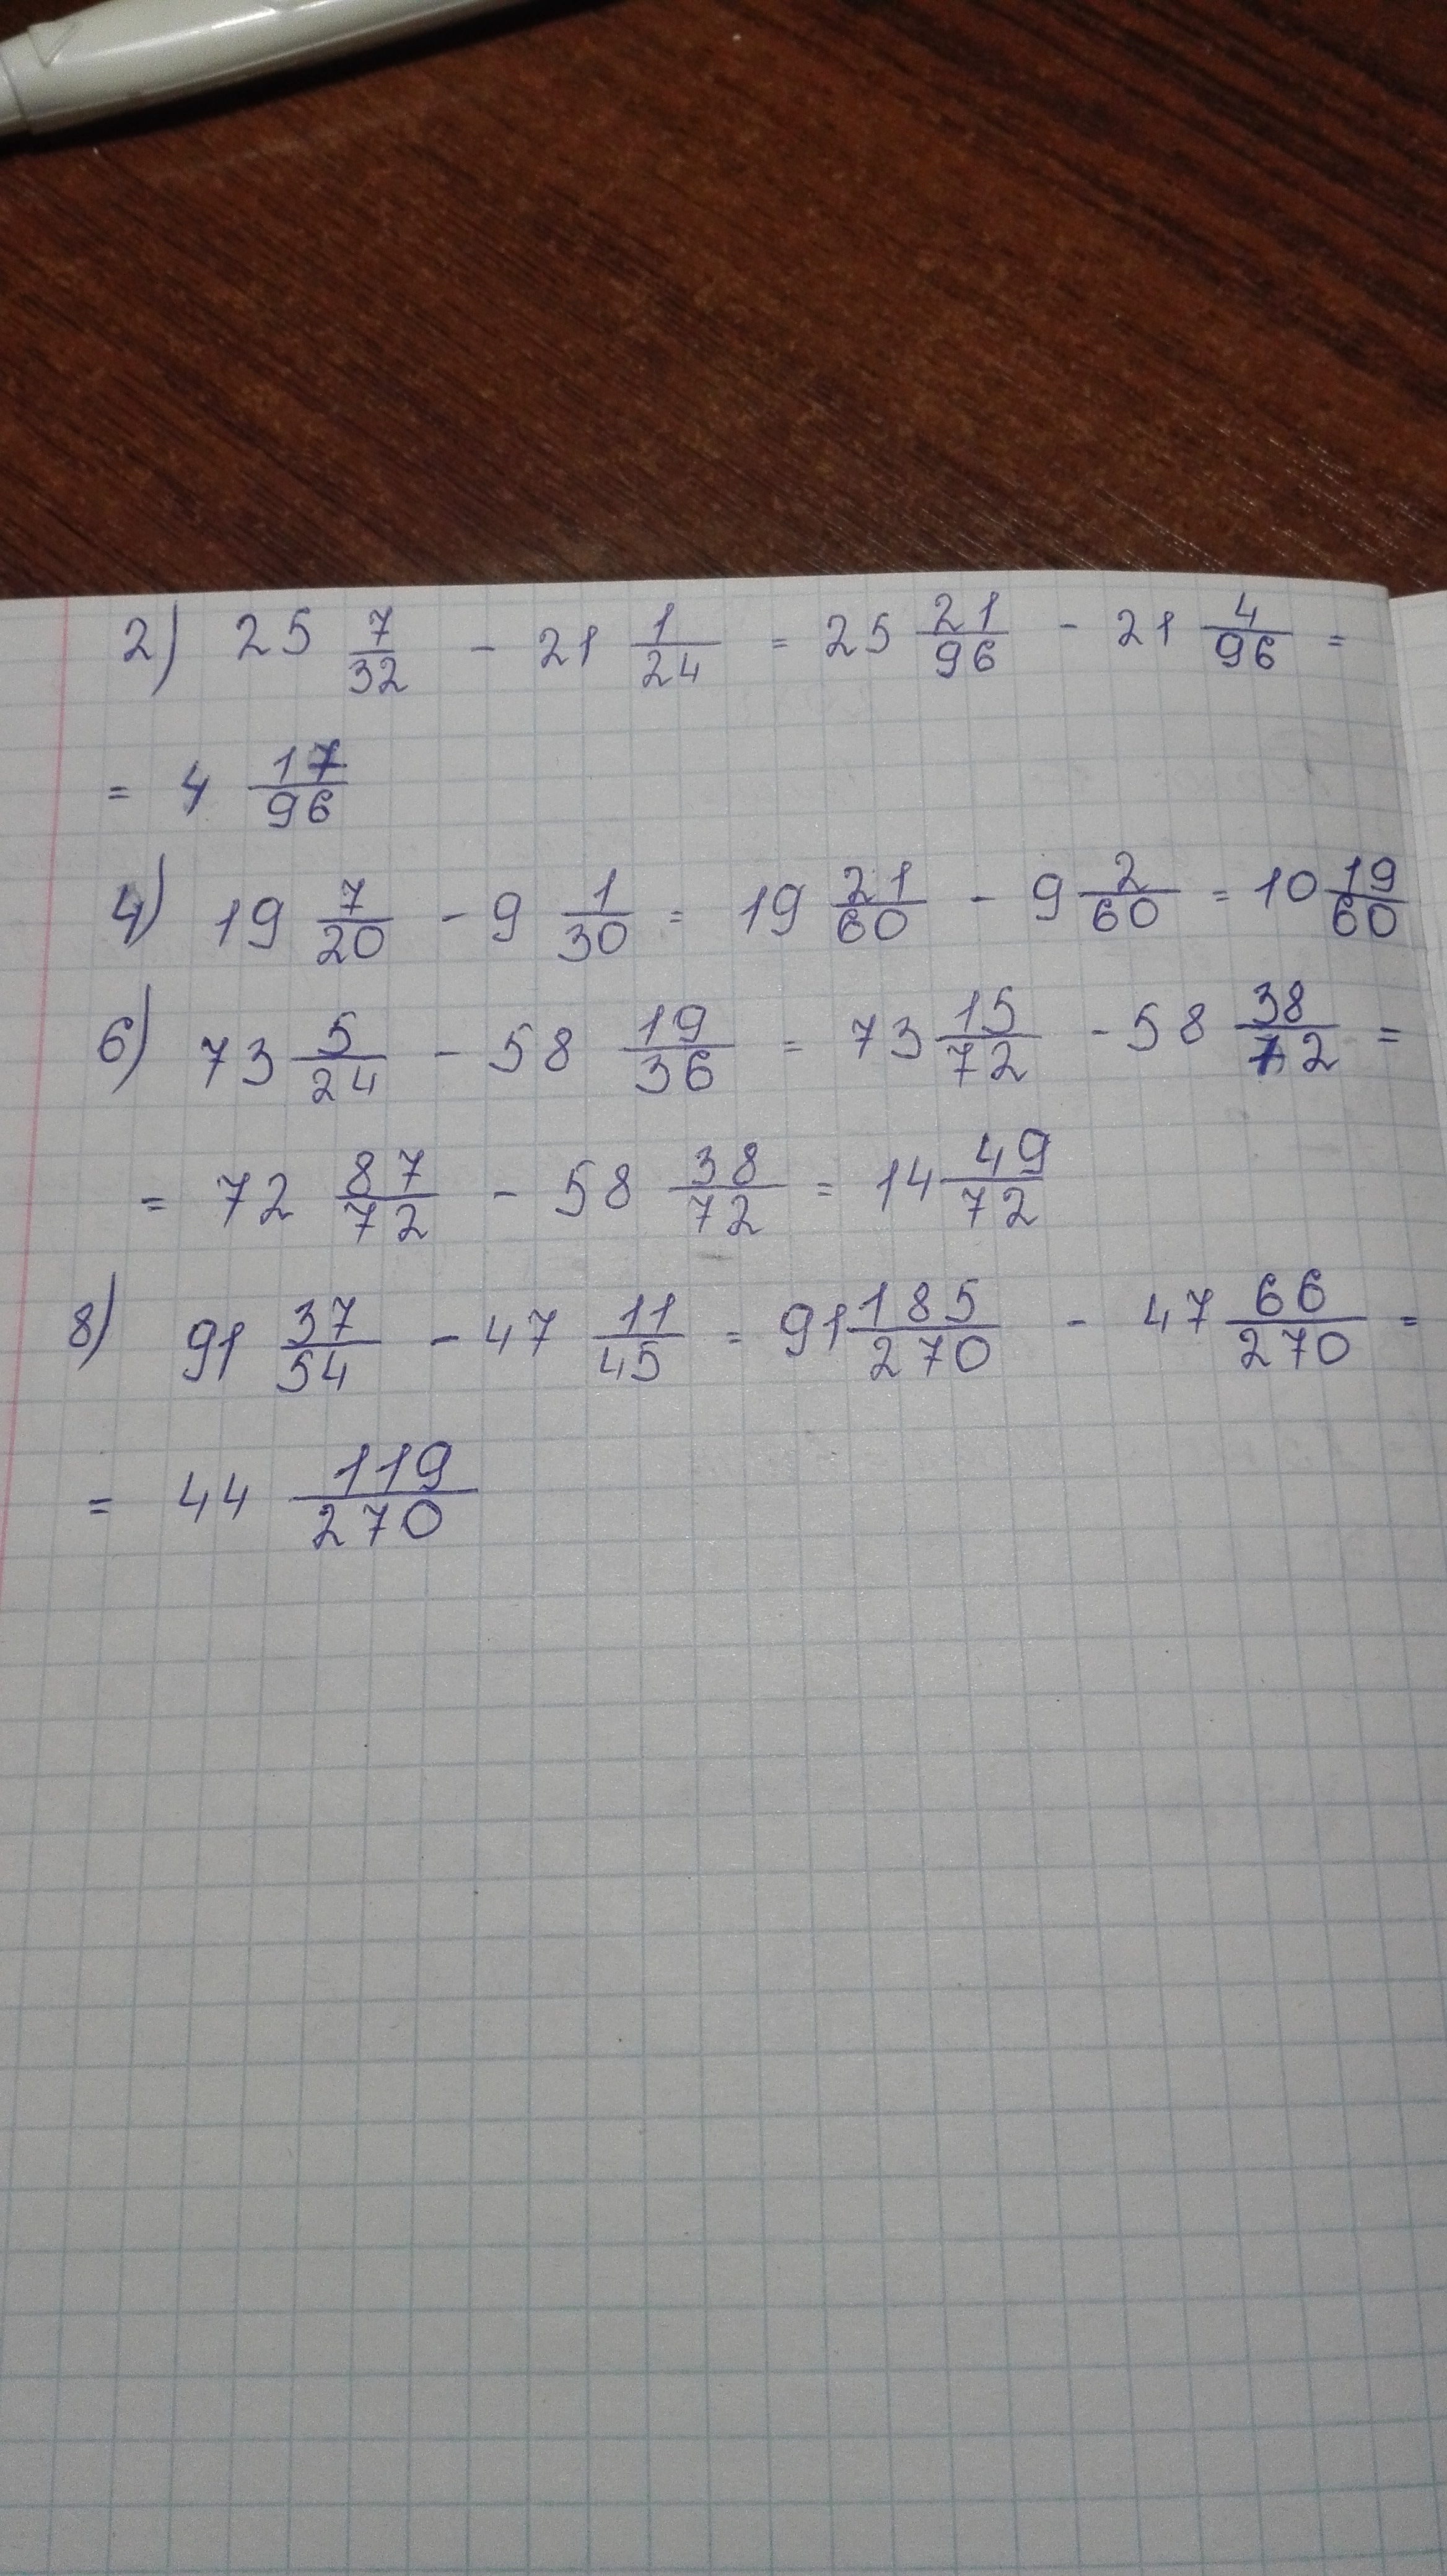 2) 25 7/32 - 21 1/24 = 25 21/96 - 21 4/96 =
= 4 17/96
4) 19 7/20 - 9 1/30 = 19 21/60 - 9 2/60 = 10 19/60
6) 73 5/24 - 58 19/36 = 73 15/72 - 58 38/72 =
= 72 87/72 - 58 38/72 = 14 49/72
8) 91 37/54 - 47 11/45 = 91 185/270 - 47 66/270 =
= 44 119/270